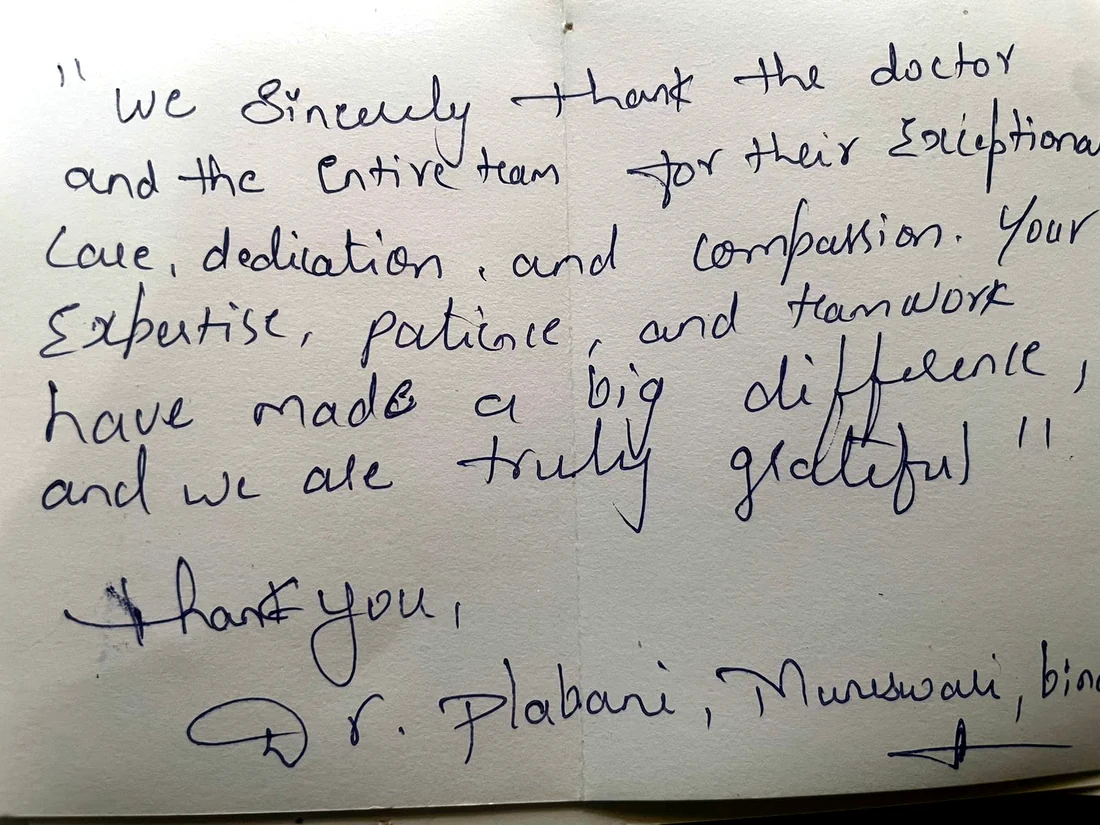 "We Sincerely thank the doctor
and the Entire team for their Exceptiona
Care, dedication, and compassion. Your
Expertise, patience, and teamwork
have made a big difference,
and we are truly grateful"
Thank you,
Dr. Plabani, Muneswari, bin